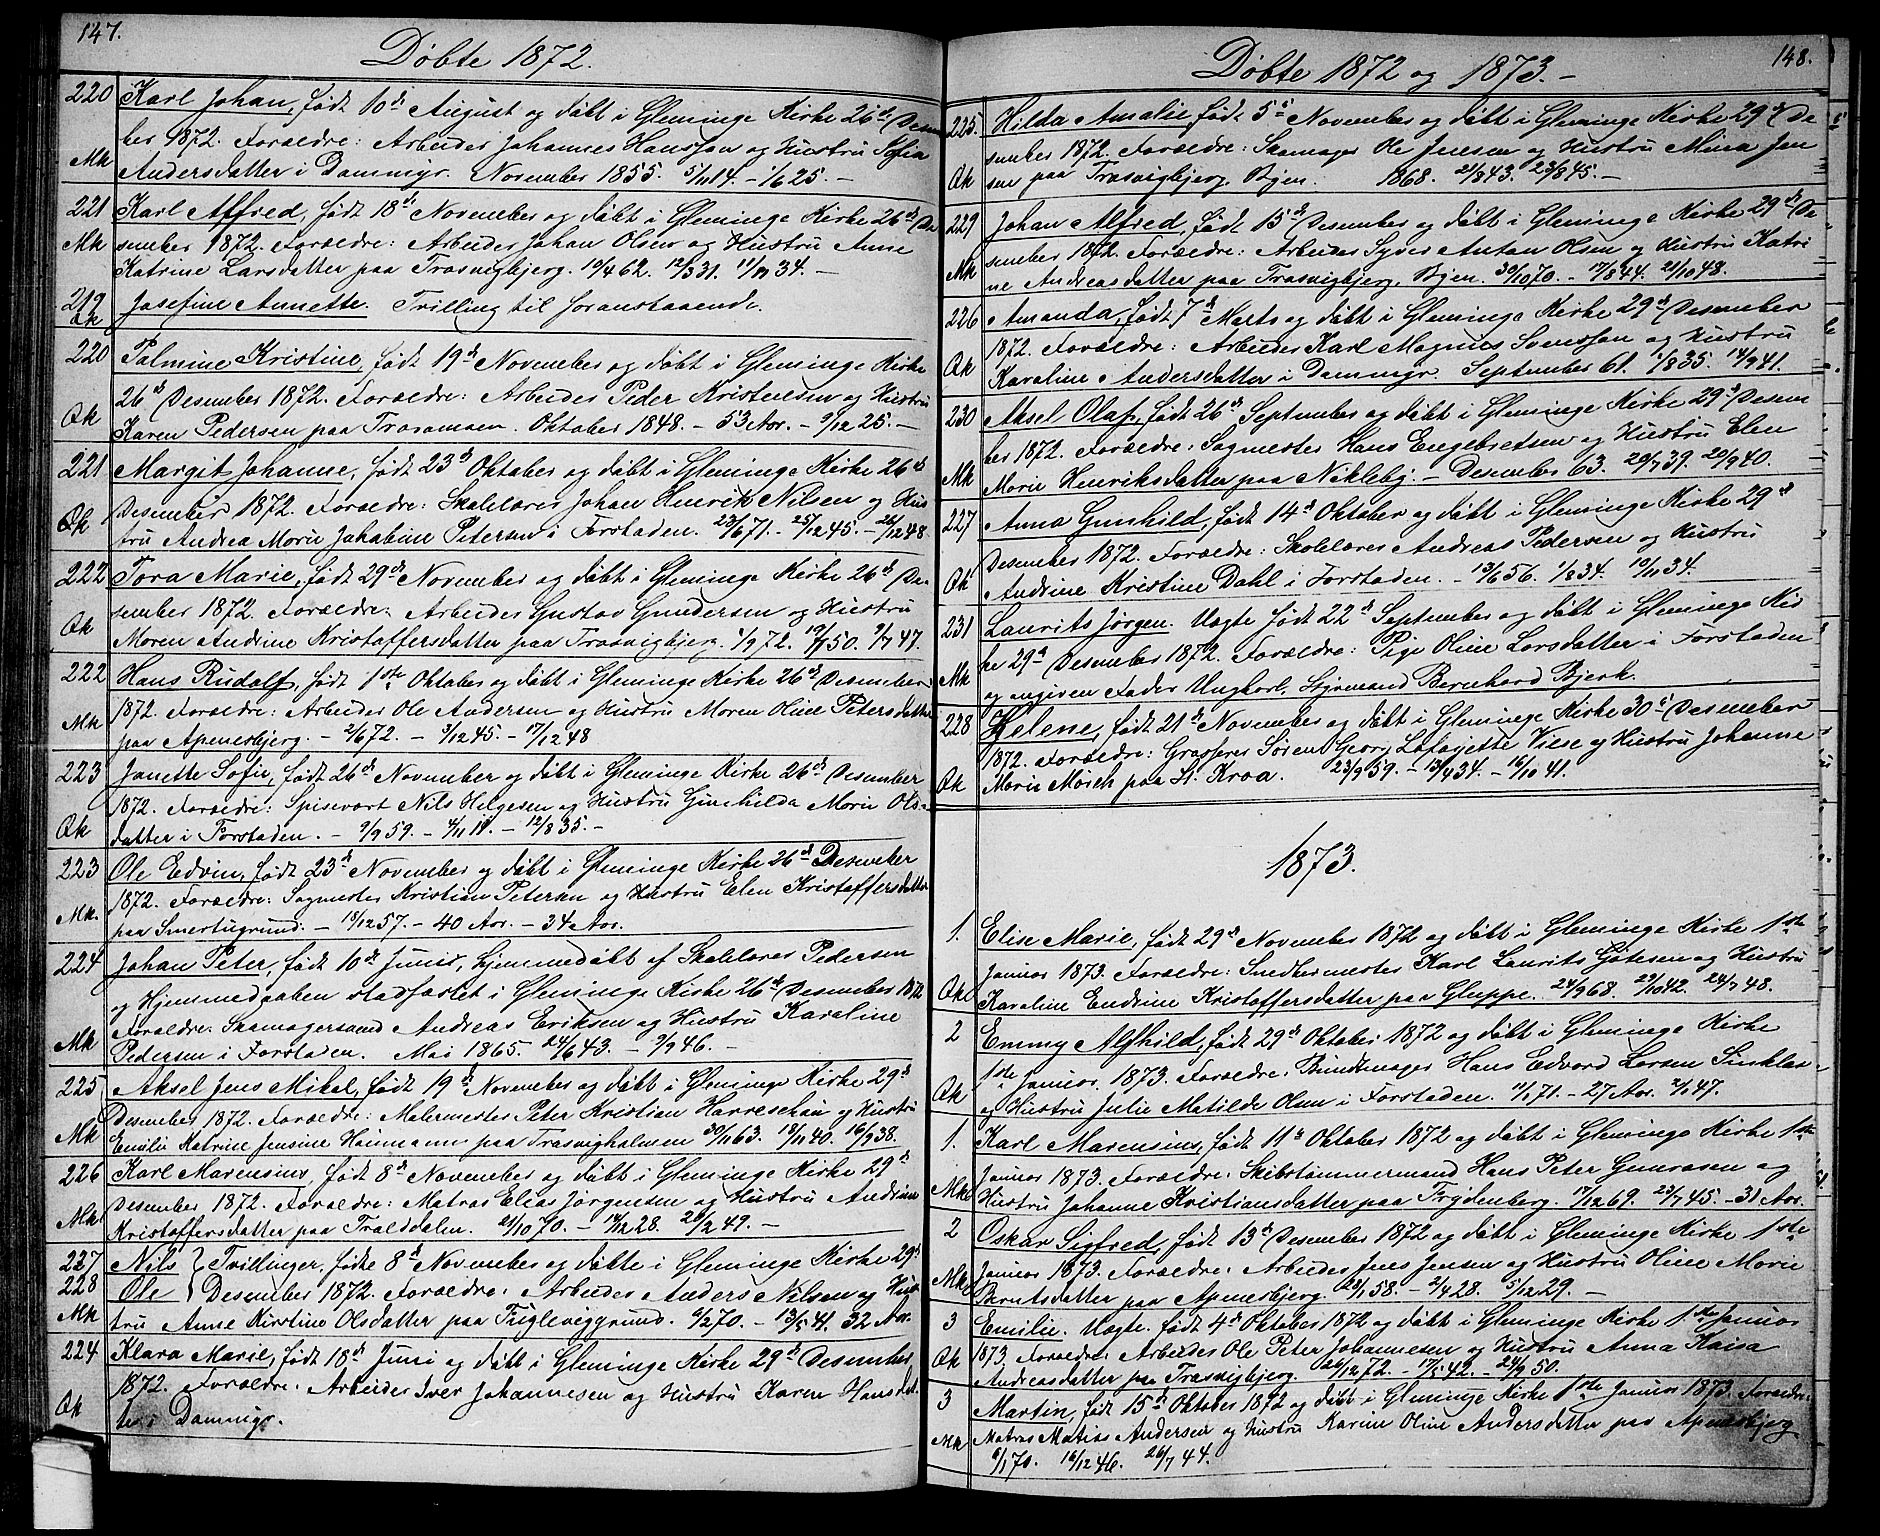 147.
Døbte 1872.
220 Karl Johan, født 10de August og døbt i Gleminge Kirke 26de Desem
ber 1872. Forældre: Arbeider Johannes Hansson og Hustru Sofia
Mk Andersdatter i Dammyr. November 1855. 5/11 14. – 1/6 25. –
221 Karl Alfred, født 18de November og døbt i Gleminge Kirke 26de De
Mk sember 1872. Forældre: Arbeider Johan Olsen og Hustru Anne
Katrine Larsdatter paa Trosvigbjerg. 10/4 62. 12/3 31. 11/11 34. –
219 Josefine Annette. Tvilling til foranstaaende.
Qk
220 Palmine Kristine, født 19de November og døbt i Gleminge Kirke
26de Desember 1872. Forældre: Arbeider Peder Kristensen og Hustru
Qk Karen Pedersen paa Trosomoen. Oktober 1848. – 53 Aar. – 9/12 25. –
221 Margit Johanne, født 23de Oktober og døbt i Gleminge Kirke 26de
Qk Desember 1872. Forældre: Skolelærer Johan Henrik Nilsen og Hus
tru Andrea Marie Jakobine Petersen i Forstaden. 23/6 71. – 25/12 45. – 26/12 48
222 Tora Marie, født 29de November og døbt i Gleminge Kirke 26de De
sember 1872. Forældre: Arbeider Gustav Gundersen og Hustru
Qk Moren Andrine Kristoffersdatter paa Trosvigbjerg. 4/9 72. 19/7 50. 9/7 47.
222 Hans Rudolf, født 1ste Oktober og døbt i Gleminge Kirke 26de Desember
1872. Forældre: Arbeider Ole Andersen og Hustru Moren Oline Petersdatter
Mk paa Apenesbjerg. – 2/6 72. – 9/12 45. – 17/12 48
223 Janette Sofie, født 26de November og døbt i Gleminge Kirke 26de Desember
1872. Forældre: Spisevært Nils Helgesen og Hustru Gunhilda Marie Ols-
Qk datter i Forstaden. – 9/9 59. – 4/11 11. – 12/8 35. –
223 Ole Edvin, født 23de November og døbt i Gleminge Kirke 26de Desember
1872. Forældre: Sagmester Kristian Petersen og Hustru Elen Kristoffersdatter
Mk. paa Smertugrund. – 15/12 57. – 40 Aar. – 34 Aar.
224 Johan Peter, født 10de Juni, hjemmedøbt af Skolelærer Pedersen
og Hjemmedaaben stadfæstet i Gleminge Kirke 26de Desember 1872
Forældre: Skomagersvend Andreas Eriksen og Hustru Karoline
Mk Pedersen i Forstaden. Mai 1865. 24/6 43. – 9/9 46. –
225 Aksel Jens Mikal, født 19de November og døbt i Gleminge Kirke 29de
Desember 1872. Forældre: Malermester Peter Kristian Harreschou og Hustru
Mk Emilie Katrine Jensine Haumann paa Trosvigholmen 30/11 63. 18/11 40. 16/9 38.
226 Karl Marensius, født 8de November og døbt i Gleminge Kirke 29de
Desember 1872. Forældre: Matros Elias Jørgensen og Hustru Andrine
Mk Kristoffersdatter paa Traraldalen. 21/10 70. – 14/12 28. 20/2 49. –
227 Nils } Tvillinger, fødte 8de November og døbte i Gleminge Kirke 29de
228 Ole } Desember 1872. Forældre: Arbeider Anders Nilsen og Hus
Mk tru Anne Kirstine Olsdatter paa Fugleviggrund. 6/2 70. – 13/5 41. 32 Aar.
224 Klara Marie, født 18de Juni og døbt i Gleminge Kirke 29de Desember
1872. Forældre: Arbeider Iver Johannesen og Hustru Karen Hansdat
Qk ter i Dammyr.
148.
Døbte 1872 og 1873. –
225. Hilda Amalie, født 5te November og døbt i Gleminge Kirke 29de De
sember 1872. Forældre: Skomager Ole Jensen og Hustru Mina Jen
Qk sen paa Trosvigbjerg, Byen. 1868. 21/8 43. 23/8 45. –
229 Johan Alfred, født 15de Desember og døbt i Gleminge Kirke 29de De
sember 1872. Forældre: Arbeider Syver Anton Olsen og Hustru Katri
Mk ne Andreasdatter paa Trosvigbjerg, Byen. 30/10 70. – 17/8 44. 21/10 48.
226 Amanda, født 7de Marts og døbt i Gleminge Kirke 29de Desember
1872. Forældre: Arbeider Karl Magnus Svensson og Hustru
Qk Karoline Andersdatter i Dammyr. September 61. 1/8 35. 14/9 41.
230 Aksel Olaf, født 26de September og døbt i Gleminge Kirke 29de Desem
ber 1872. Forældre: Sagmester Hans Engebretsen og Hustru Elen
Mk Marie Henriksdatter paa Nikleby. – Desember 63. 20/7 39. 20/9 40.
227 Anna Gunhild, født 14de Oktober og døbt i Gleminge Kirke 29de
Desember 1872. Forældre: Skolelærer Andreas Pedersen og Hustru
Qk Andrine Kristine Dahl i Forstaden. – 13/6 56. 1/8 34. 10/11 34.
231 Laurits Jørgen. Uægte født 22de September og døbt i Gleminge Kir
ke 29de Desember 1872. Forældre: Pige Oline Larsdatter i Forstaden
Mk og angiven Fader Ungkarl, Styrmand Bernhard Bjerk.
228 Helene, født 21de November og døbt i Gleminge Kirke 30te Desember
1872. Forældre: Grosserer Søren Georg Lafayette Viese og Hustru Johanne
Qk Marie Mørch paa St. Kroa. 23/9 59. – 13/4 34. – 16/10 41.
1873.
1. Elise Marie, født 29de November 1872 og døbt i Gleminge Kirke 1ste
Januar 1873. Forældre: Snedkermester Karl Laurits Gotesen og Hustru
Qk Karoline Endrine Kristoffersdatter paa Gluppe. 24/9 68. 27/10 42. 24/7 48.
2 Emmy Alfhild, født 29de Oktober 1872 og døbt i Gleminge Kirke
1ste Januar 1873. Forældre: Bundtmager Hans Edvard Larsen Sinklar
Qk og Hustru Julie Matilde Olsen i Forstaden. 11/1 71. – 27 Aar. 2/1 47.
1. Karl Marensius, født 11te Oktober 1872 og døbt i Gleminge Kirke 1ste
Januar 1873. Forældre: Skibstømmermand Hans Peter Gunrosen og
Mk Hustru Johanne Kristiansdatter paa Frydenberg. 17/12 69. 23/7 45. – 31 Aar.
2 Oskar Sigfred, født 13de Desember 1872 og døbt i Gleminge Kirke 1ste
Mk Januar 1873. Forældre: Arbeider Jens Jensen og Hustru Oline Marie
Berntsdatter paa Apenesbjerg. 28/1 58. – 2/4 28. 5/12 29. –
3 Emilie. Uægte. født 4de Oktober 1872 og døbt i Gleminge Kirke 1ste Januar
Qk 1873. Forældre: Arbeider Ole Peter Johannesen og Hustru Anna Kaisa
Andreasdatter paa Trosvigbjerg. 26/12 72. – 17/5 42. – 24/9 50.
3 Martin, født 15de Oktober 1872 og døbt i Gleminge Kirke 1ste Januar 1873. Forældre:
Mk Matros Matias Andersen og Hustru Karine Oline Andersdatter paa Apenesbjerg
6/1 70. 16/12 46. 26/7 44.